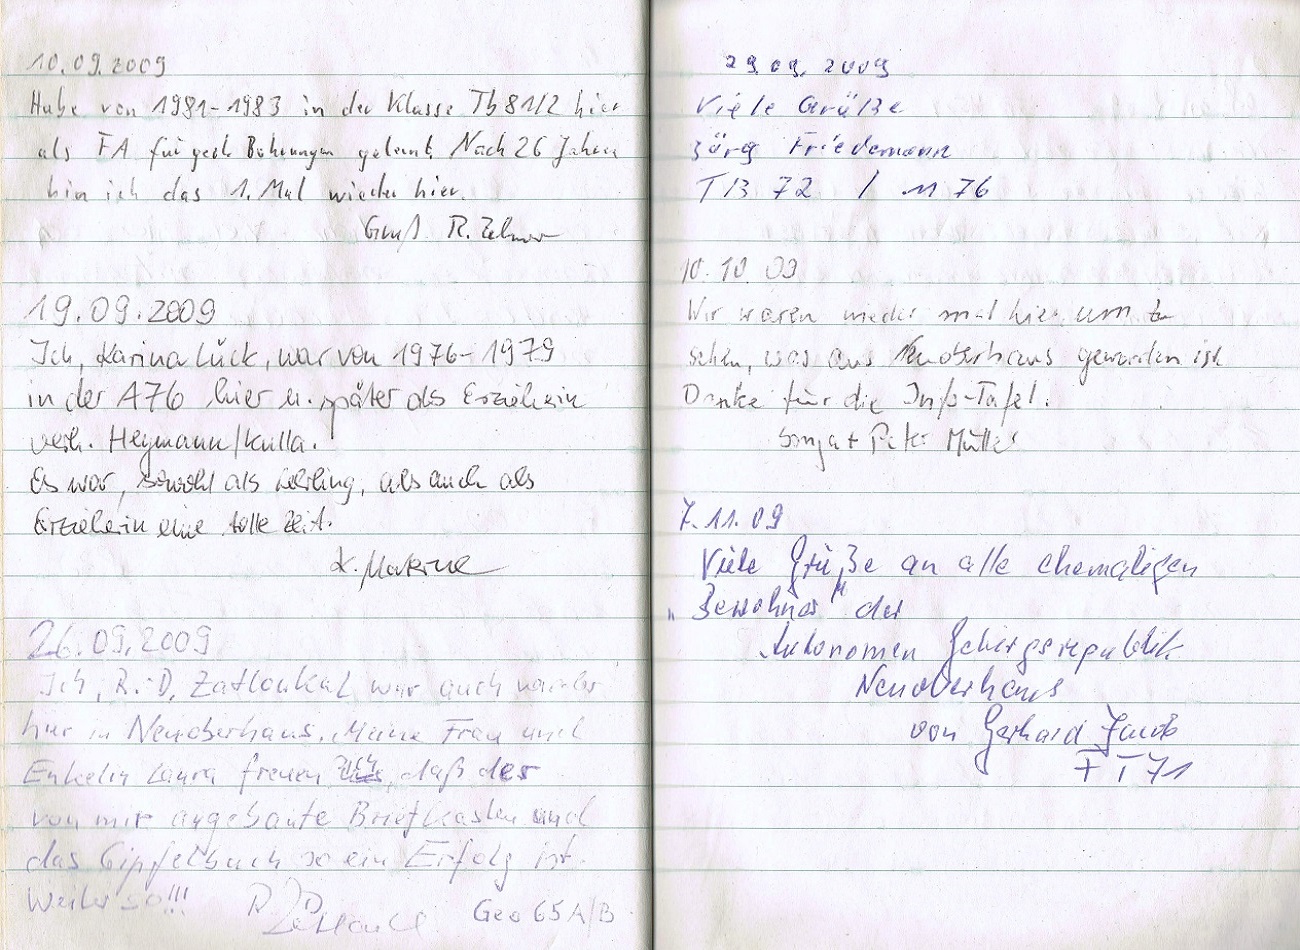 10.09.2009
Habe von 1981-1983 in der Klasse Tb81/2 hier
als FA für geol. Bohrungen gelernt. Nach 26 Jahren
bin ich das 1. Mal wieder hier.
Gruß R.
19.09.2009
Ich, Karina Lück, war von 1976-1979
in der A76 hier u. später als Erzieherin
verh. Heymann/Kulla.
Es war, sowohl als Lehrling, als auch als
Erzieherin eine tolle Zeit.
K.
26.09.2009
Ich, R.-D. Zatloukal war auch wieder
hier in Neuoberhaus. Meine Frau und
Enkelin Laura freuen sich, daß der
von mir angebaute Briefkasten und
das Gipfelbuch so ein Erfolg ist.
Weiter so!!!
Geo 65 A/B
29.09.2009
Viele Grüße
Jörg Friedemann
TB 72 / M 76
10.10.09
Wir waren wieder mal hier um zu
sehen, was aus Neuoberhaus geworden ist
Danke für die Info-Tafel.
Sonja + Peter Müller
7.11.09
Viele Grüße an alle ehemaligen
„Bewohner" der
Autonomen Gebirgsrepublik
Neuoberhaus
von Gerhard Jacob
FT 71